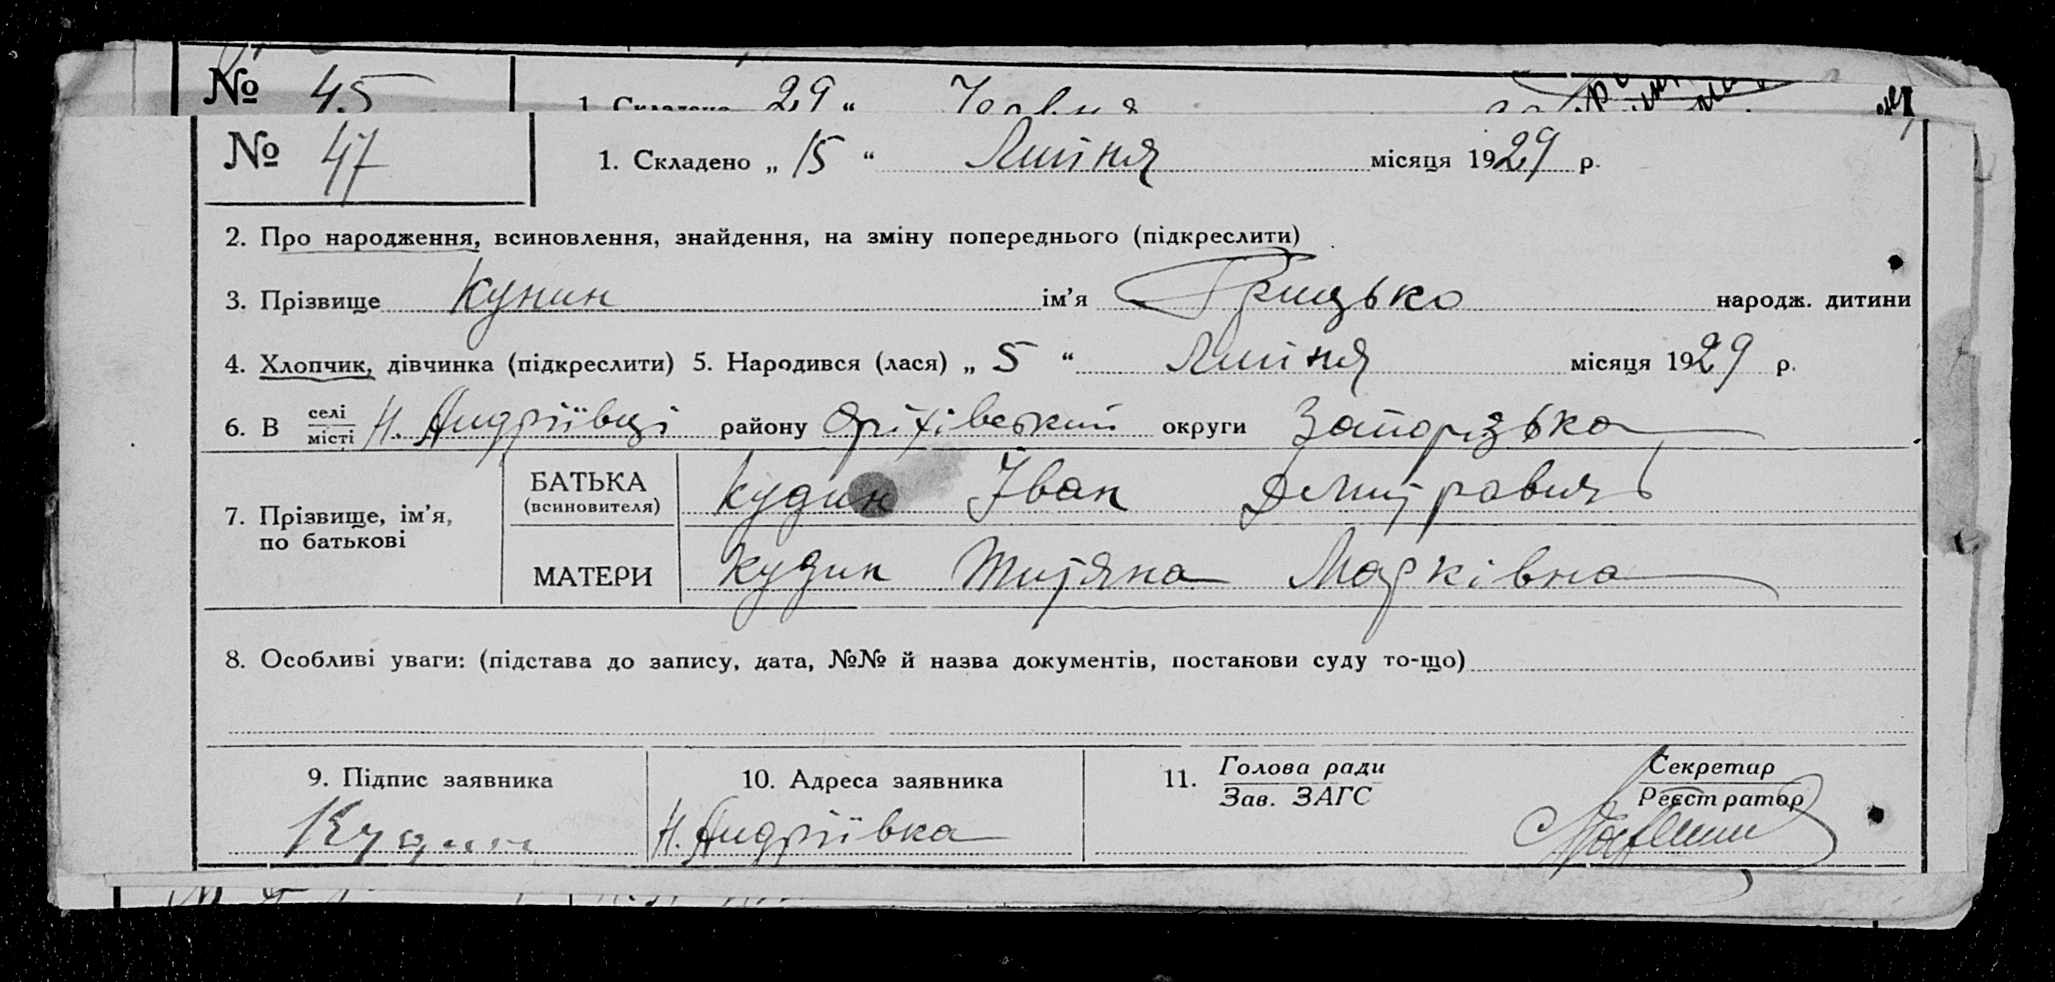 № 45 1. Складено 29 “ Червня
№ 47 1. Складено „ 15 “ Липня місяця 1929 р.
2. Про народження, всиновлення, знайдення, на зміну попереднього (підкреслити)
3. Прізвище Кунин ім'я Грицько народж. дитини
4. Хлопчик, дівчинка (підкреслити) 5. Народився (лася) „ 5 “ Липня місяця 1929 р.
6. В селі/місті Н. Андріївці району Оріхівський округи Запорізька
7. Прізвище, ім'я, по батькові
БАТЬКА (всиновителя) Кудин Іван Дмитравичь
МАТЕРИ Кудин Титяна Марківна
8. Особливі уваги: (підстава до запису, дата, №№ й назва документів, постанови суду то-що)
9. Підпис заявника 10. Адреса заявника 11. Голова ради/Зав. ЗАГС Секретар/Реєстратор
Кудин Н. Андріївка